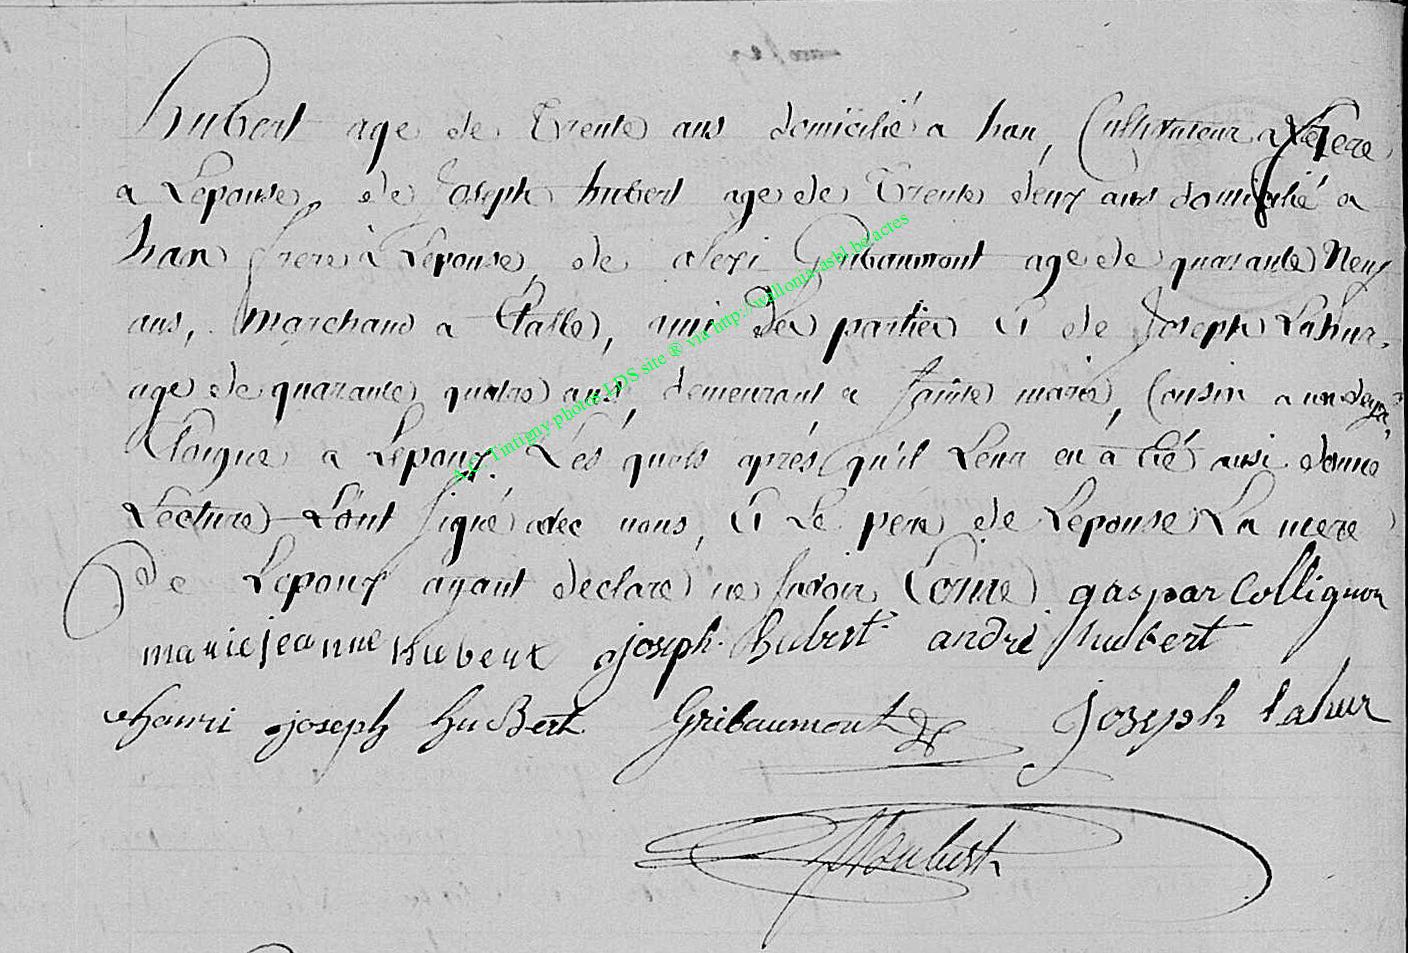 hubert age de Trente ans domicilié a han, Cultivateur a frere
a Lepouse, de Joseph hubert age de Trente deux ans domicilié a
han frere a Lepouse, de alexi Gribaumont age de quarante Neuf
ans, marchand a Etalle, ami des parties Et de Joseph Lahur,
age de quarante quatre ans, demeurant a Sainte marie, Cousin a un degré
Eloigné a Lepoux. Lés quels aprés qu'il Leur en a été aussi donné
Lecture L'ont signé avec nous, Et Le pere de Lepouse La mere
de Lepoux ayant declare ne savoir gaspar Collignon
marie jeanne hubert joseph hubert andré hubert
henri joseph huBert Gribaumont Joseph lahur
A.C. Tintigny photos LDS site ® via http://wallonia-asbl.be/actes